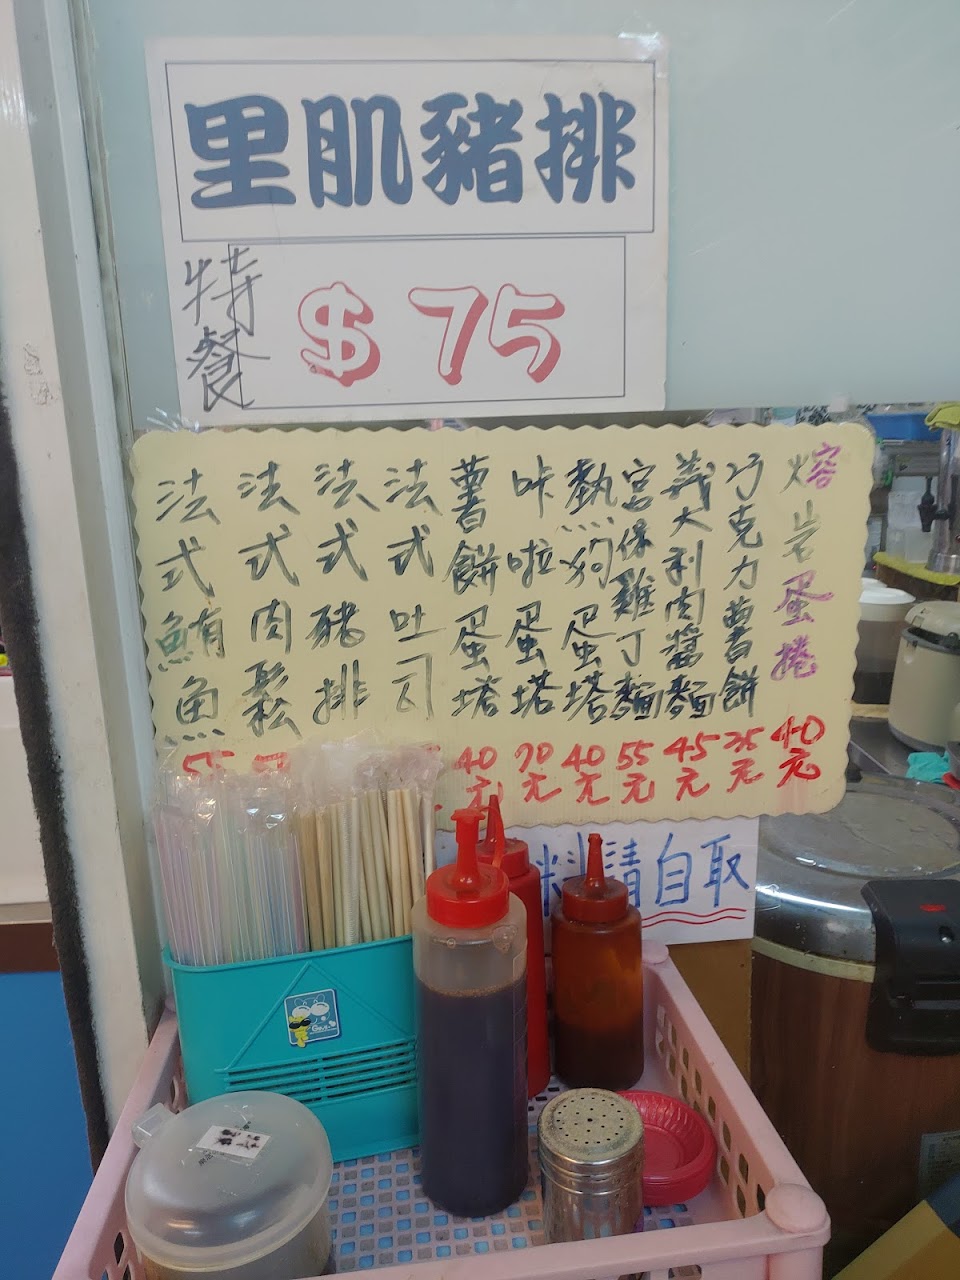 里肌豬排
特餐
$75
熔岩蛋捲 40元
巧克力薯餅 35元
義大利肉醬麵 45元
宮保雞丁麵 55元
熱狗蛋塔 40元
咔啦蛋塔 70元
薯餅蛋塔 40元
法式吐司
法式豬排
法式肉鬆
法式鮪魚 55
料請自取